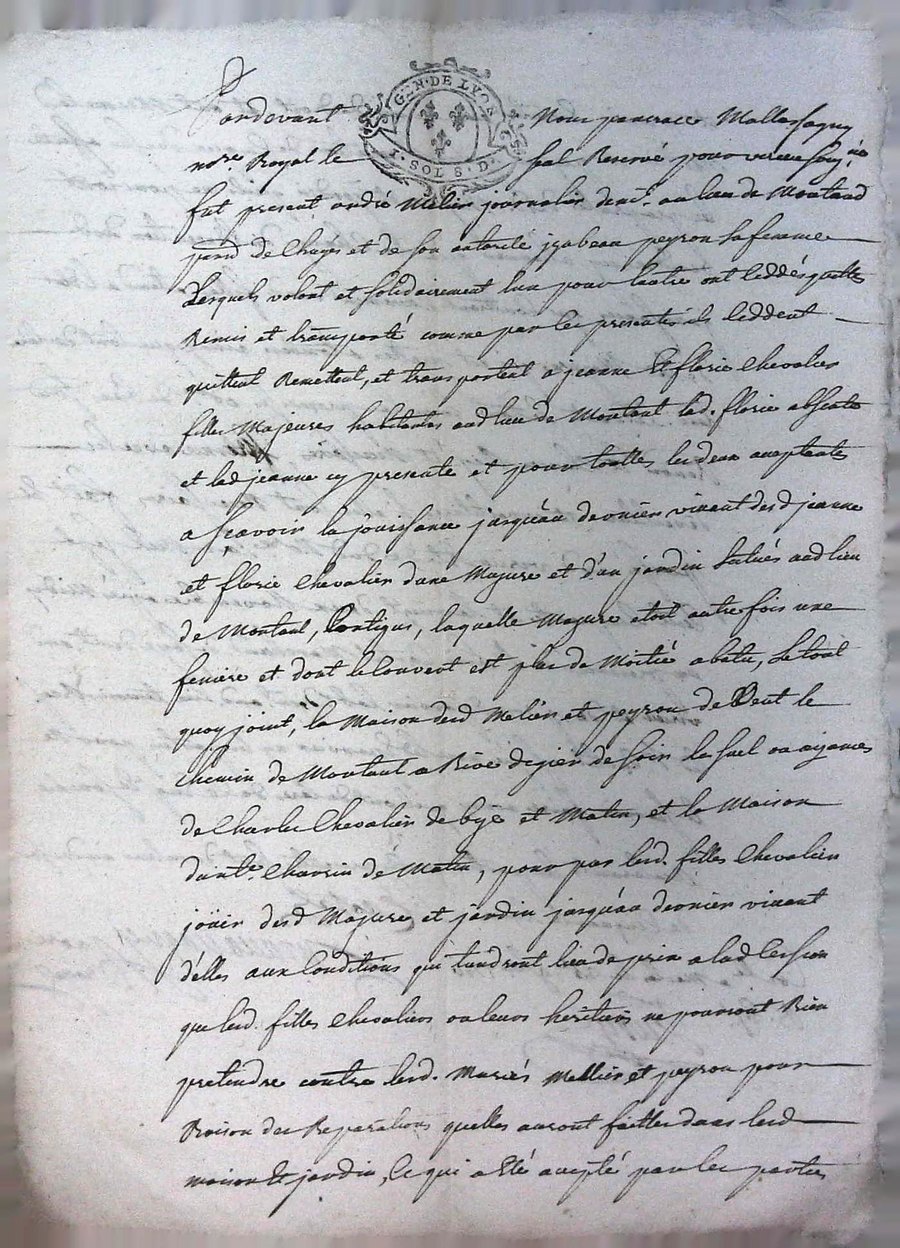 GEN. DE LYON
1. SOL 8. D.
Pardevant Nous pancrace Mallassagny
no.re Royal le sal Reservé pour
fut present andré Melier journalier dem.t au lieu de Montaud
de et de son autorité jzabeau peyron sa femme
Lesquels volont et solidairement lun pour lautre ont ceddés quitté
Remis et transporté comme par les presentes ils ceddent
quittent Remettent, et transportent a jeanne & florie chevalier
filles Majeures habitantes aud lieu de Montaut lad. florie absente
et lad jeanne cy presente et pour touttes les deux aceptante
a scavoir la jouissance jusqu'au dernier vivant desd jeanne
et florie Chevalier dune Mazure et d'un jardin situés aud lieu
de Montaut, Contigus, laquelle Mazure etoit autre fois une
feniere et dont le couvert est plus de Moitié abatu, le tout
quoy joint, la Maison desd Melier et peyron de Vent le
chemin de Montaut a Rive degier de soir la suel ou aizances
de Charles Chevalier de bize et Matin, et la Maison
dant.e Charrin de Matin, pour par lesd. filles Chevalier
joüir desd Mazure et jardin jusqu'au dernier vivant
d'elles aux Conditions qui tiendront lieu de prix a lad Cession
que lesd. filles chevaliers ou leurs heritiers ne pourront Rien
pretendre contre lesd. Mariés Mellier et peyron pour
Raison des Reparations quelles auront faittes dans lesd
maison & jardin, Ce qui a eté accepté par les parties